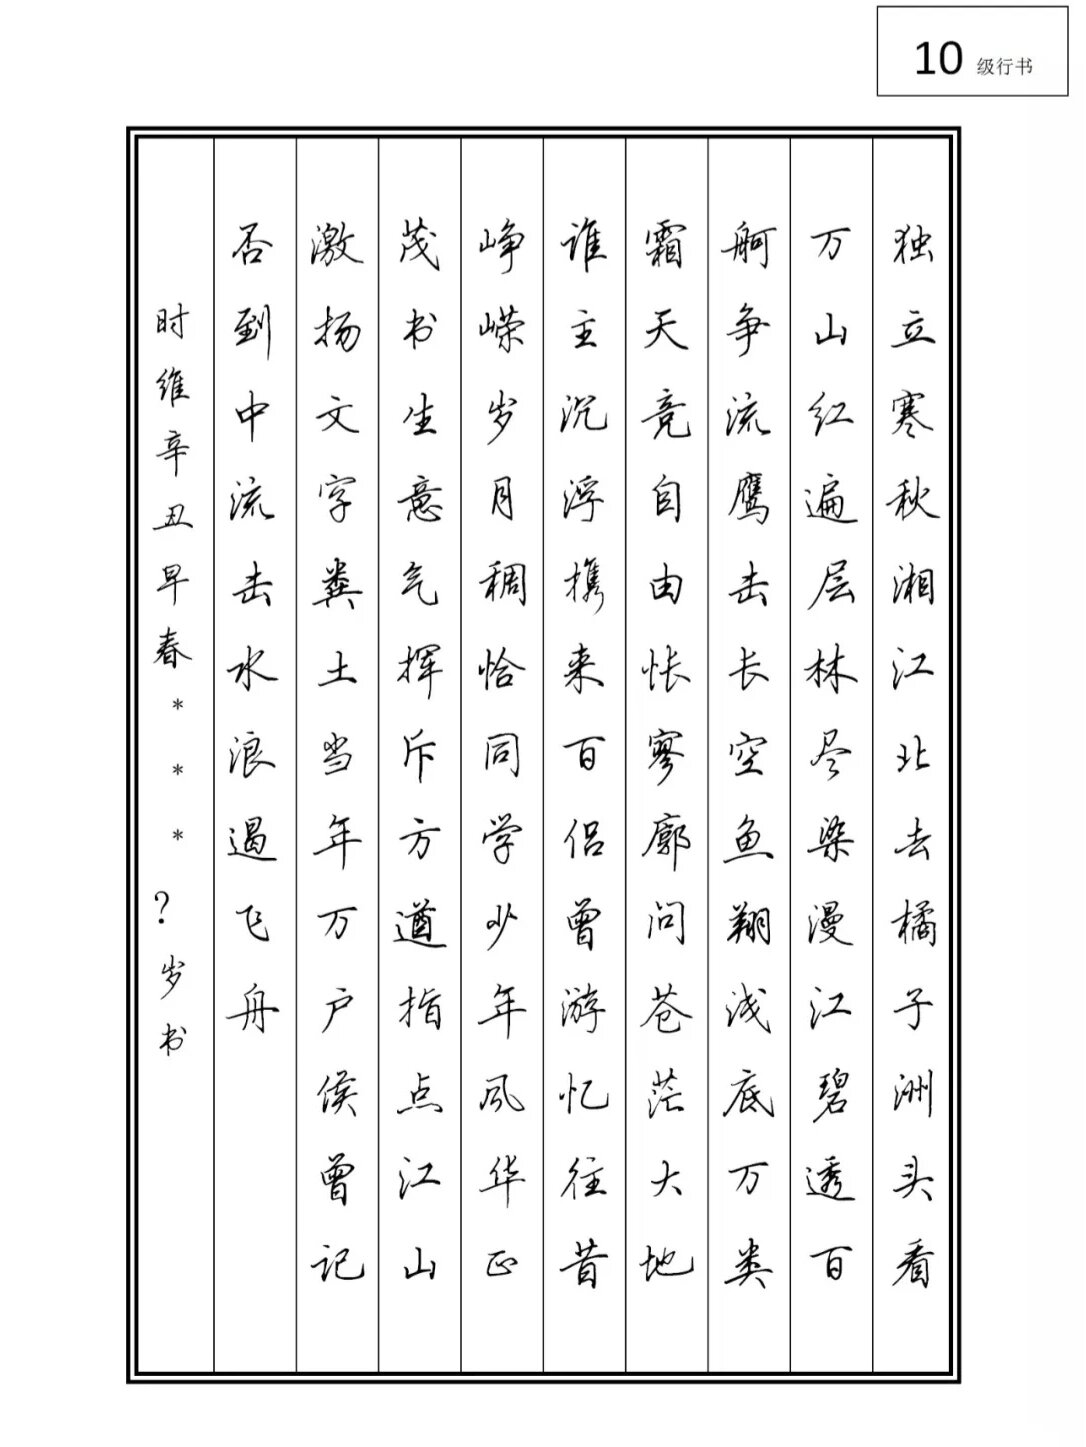 10 级行书
独立寒秋湘江北去橘子洲头看
万山红遍层林尽染漫江碧透百
舸争流鹰击长空鱼翔浅底万类
霜天竞自由怅寥廓问苍茫大地
谁主沉浮携来百侣曾游忆往昔
峥嵘岁月稠恰同学少年风华正
茂书生意气挥斥方遒指点江山
激扬文字粪土当年万户侯曾记
否到中流击水浪遏飞舟
时维辛丑早春***?岁书